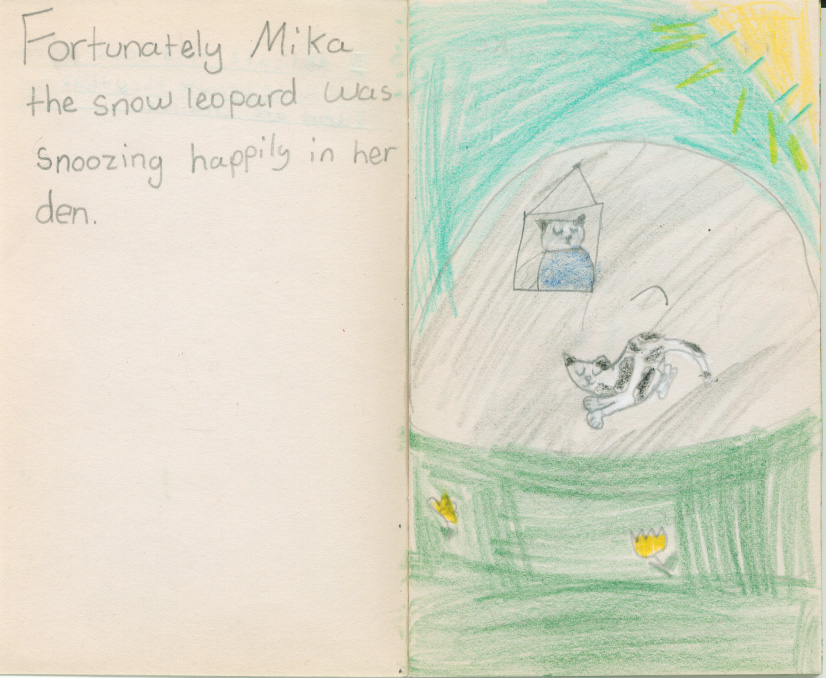 Fortunately Mika
the snow leopard was
snoozing happily in her
den.